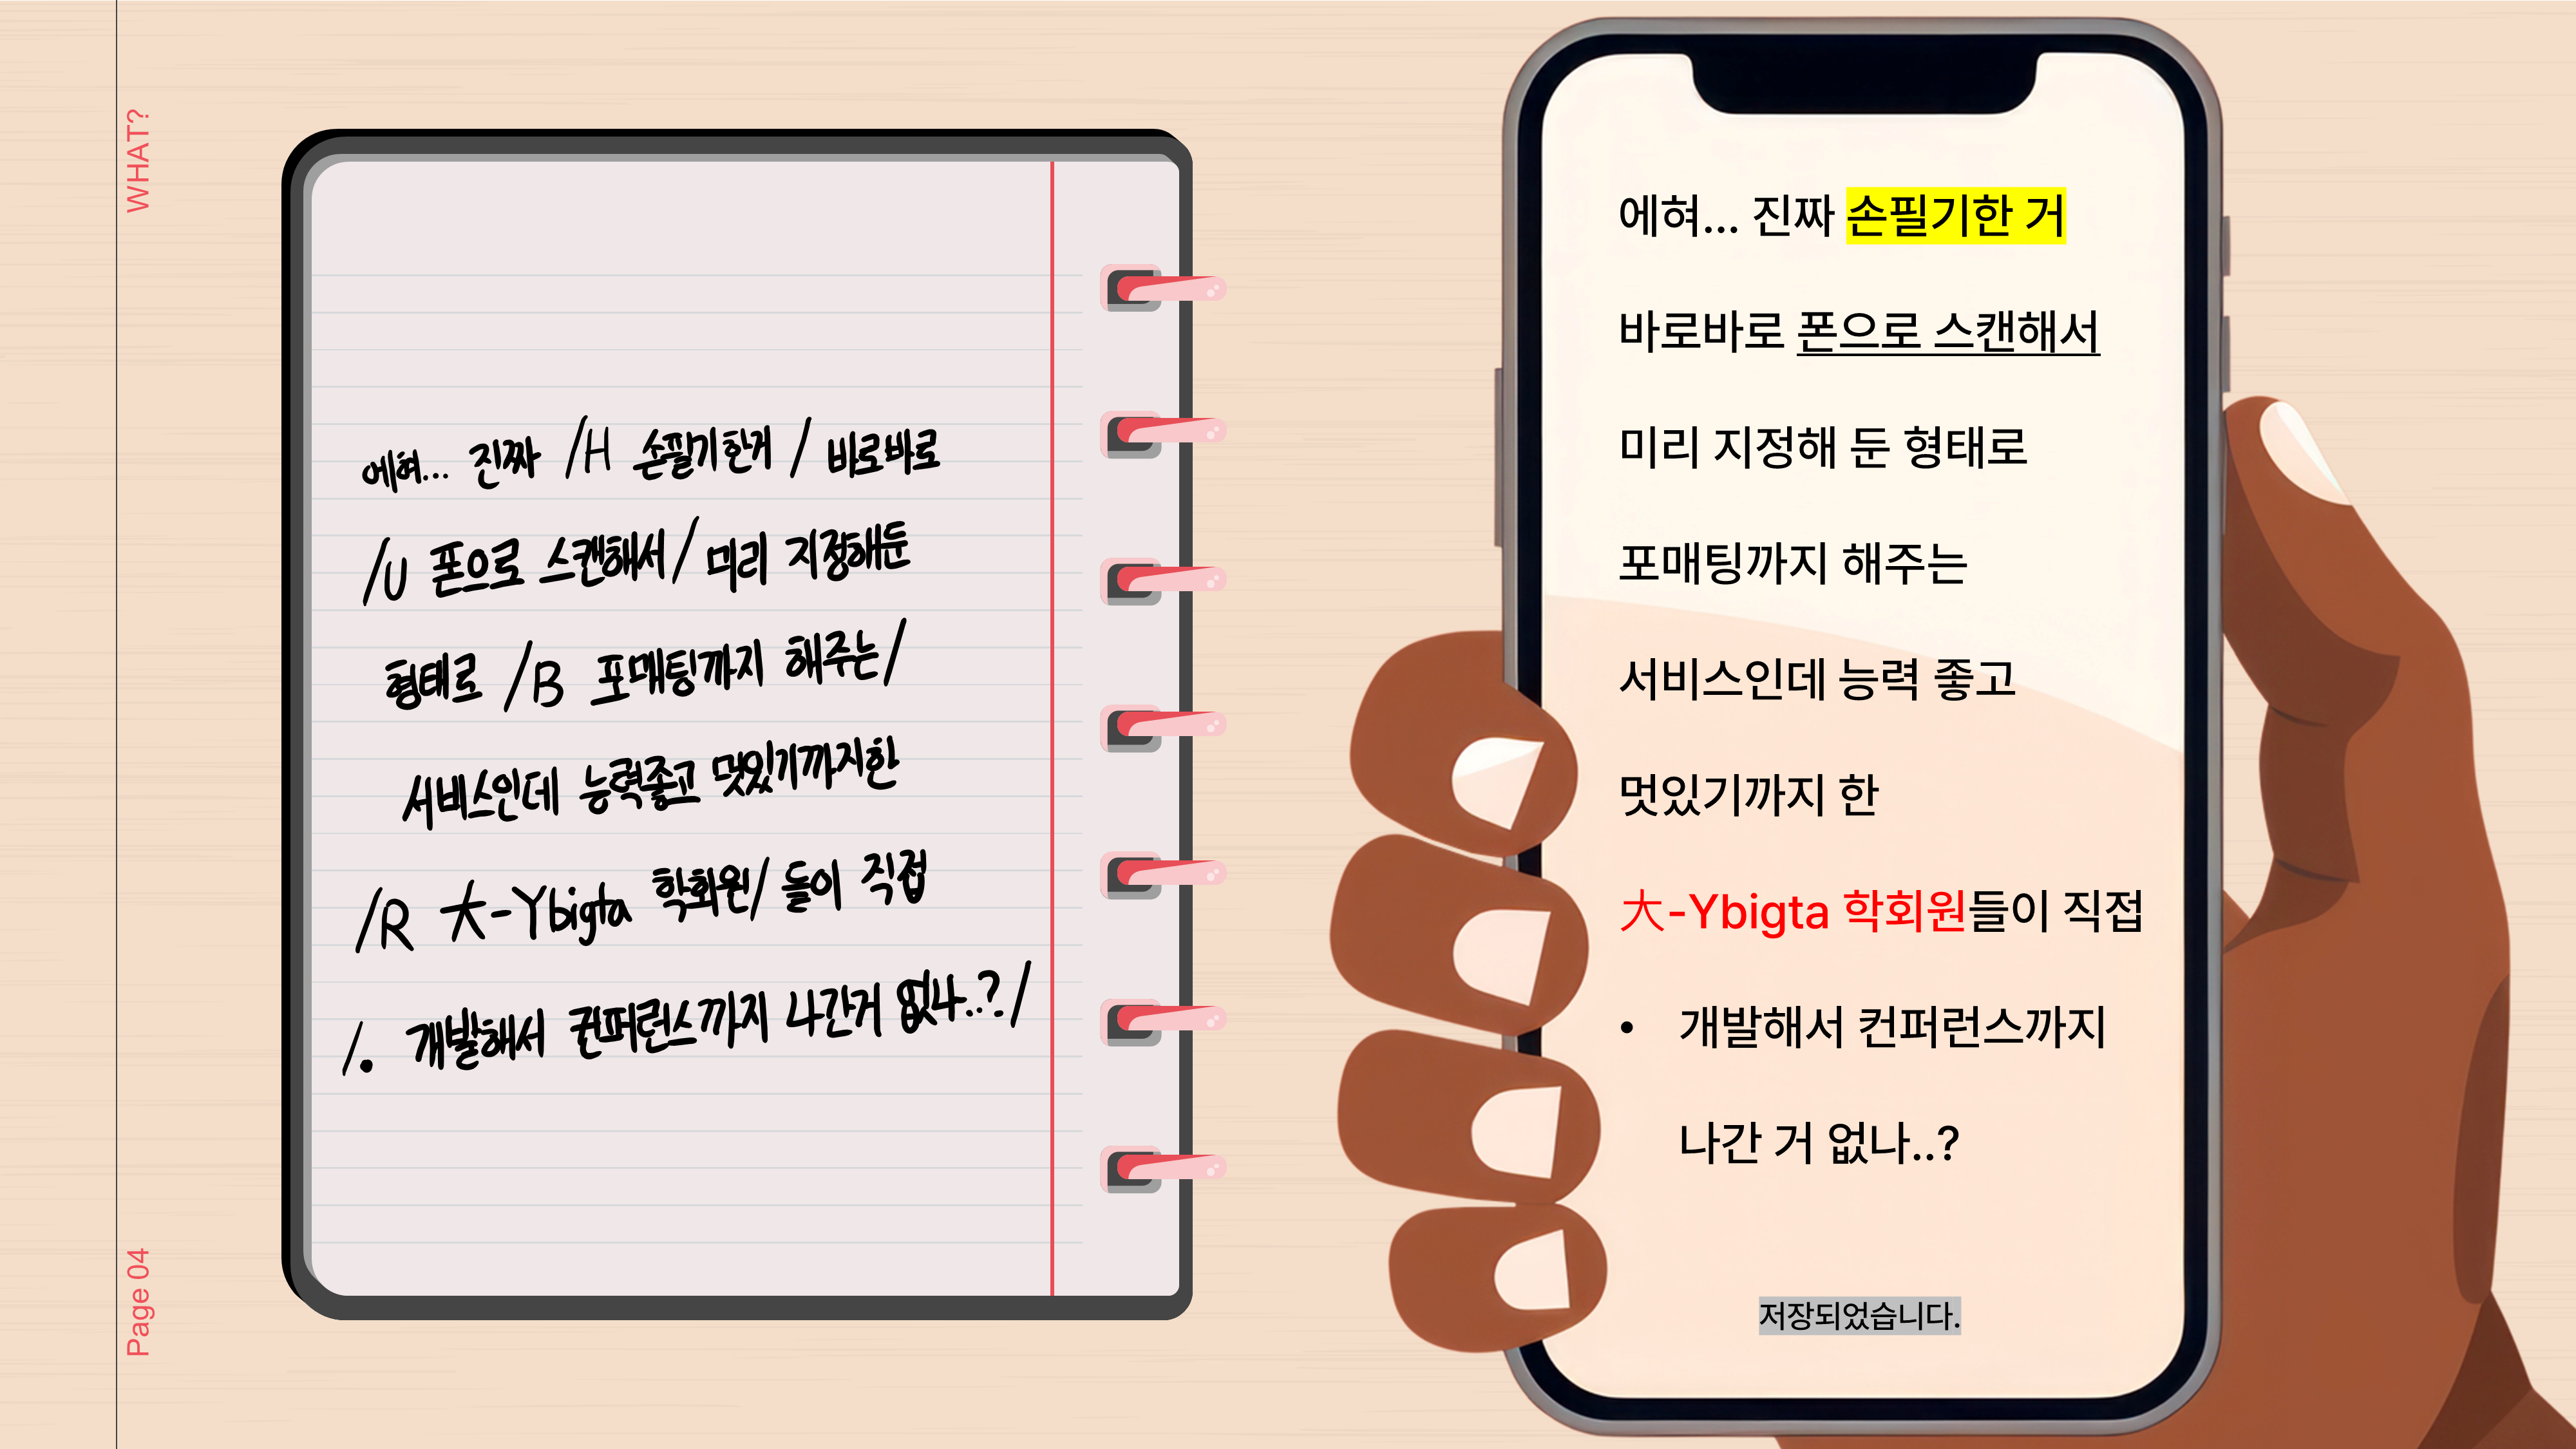 WHAT?
에혀... 진짜 /H 손필기한거 / 바로바로
/U 폰으로 스캔해서 / 미리 지정해둔
형태로 /B 포매팅까지 해주는 /
서비스인데 능력좋고 멋있기까지한
/R 大-Ybigta 학회원/ 들이 직접
/. 개발해서 컨퍼런스까지 나간거 없나..? /
에혀... 진짜 손필기한 거
바로바로 폰으로 스캔해서
미리 지정해 둔 형태로
포매팅까지 해주는
서비스인데 능력 좋고
멋있기까지 한
大-Ybigta 학회원들이 직접
• 개발해서 컨퍼런스까지
나간 거 없나..?
저장되었습니다.
Page 04